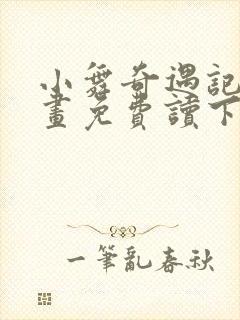 小舞奇遇記
畫免費讀下
一筆亂春秋